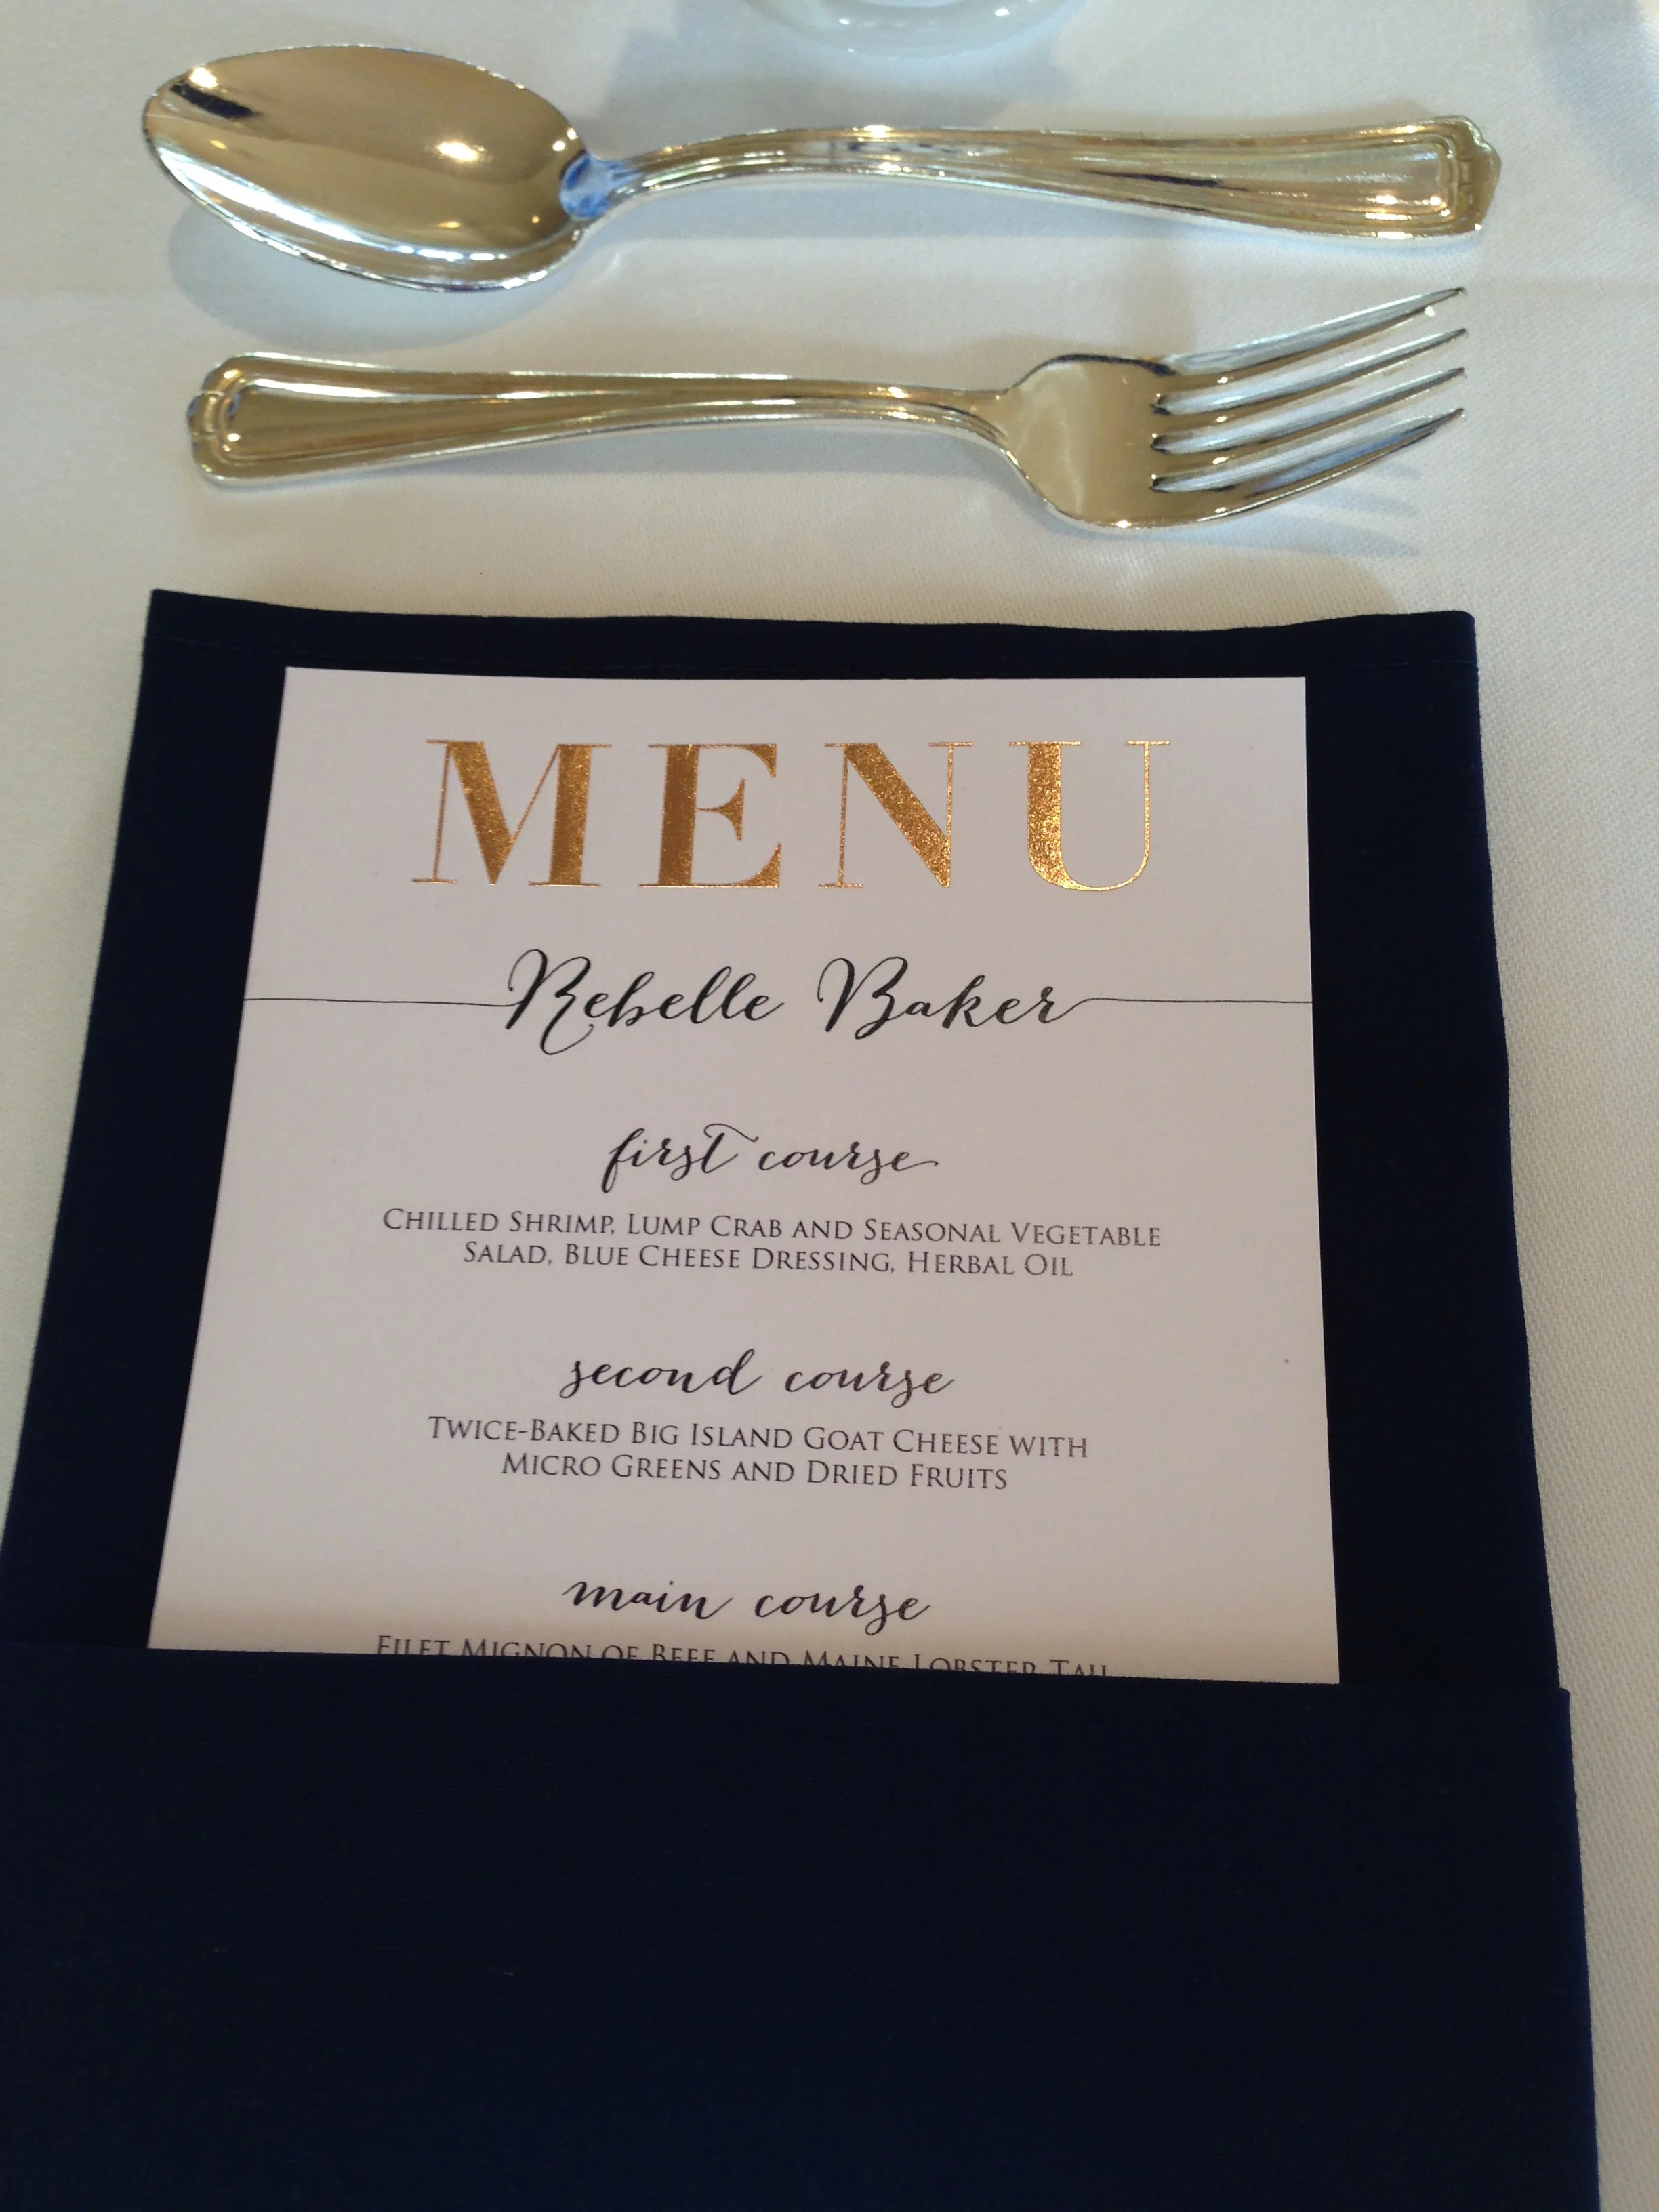 MENU
Rebelle Baker
first course
CHILLED SHRIMP, LUMP CRAB AND SEASONAL VEGETABLE
SALAD, BLUE CHEESE DRESSING, HERBAL OIL
second course
TWICE-BAKED BIG ISLAND GOAT CHEESE WITH
MICRO GREENS AND DRIED FRUITS
main course
FILET MIGNON OF BEEF AND MAINE LOBSTER TAIL